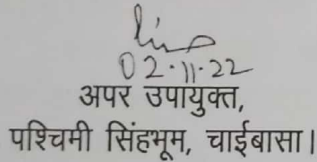 02.11.22
अपर उपायुक्त,
पश्चिमी सिंहभूम, चाईबासा।